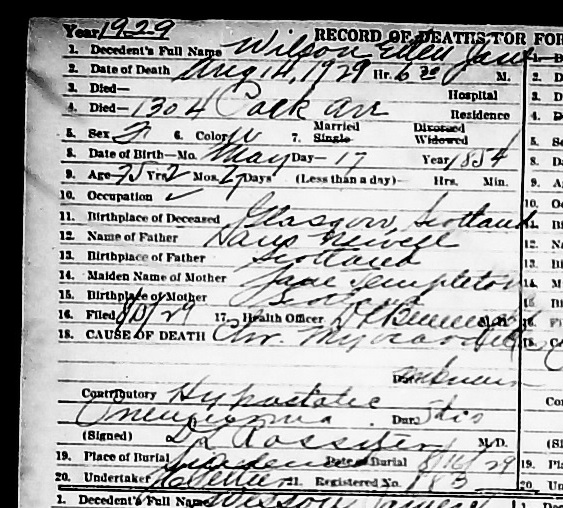 Year 1929 RECORD OF DEATHS FOR FOR
1. Decedent's Full Name Wilson Ellen Jane
2. Date of Death Aug 14, 1929 Hr. 6 30 M.
3. Died— Hospital
4. Died— 1304 Park Residence
5. Sex F 6. Color W 7. Married Single Divorced Widowed
8. Date of Birth—Mo. May Day— 17 Year 1854
9. Age 75 Yrs. 2 Mos. 27 Days (Less than a day)— Hrs. Min.
10. Occupation ✓
11. Birthplace of Deceased Glasgow, Scotland
12. Name of Father Newell
13. Birthplace of Father Scotland
14. Maiden Name of Mother Jane Templeton
15. Birthplace of Mother Scotland
16. Filed 29 17. Health Officer M.D.
18. CAUSE OF DEATH Chr. Myocarditis
Dur. unknown
Contributory Hypostatic
Pneumonia Dur.
(Signed) D L Rossiter M.D.
19. Place of Burial Date of Burial 8/16/29
20. Undertaker 21. Registered No. 183
1. Decedent's Full Name Wilson James